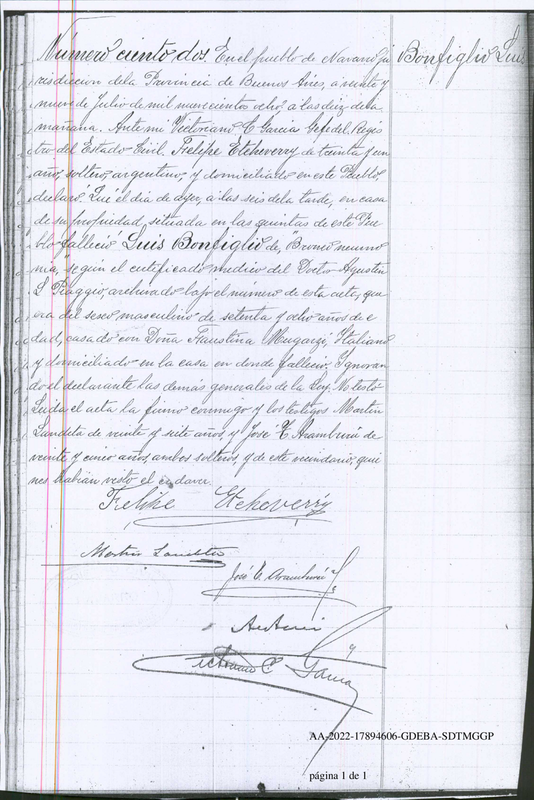 Número ciento dos. En el pueblo de Navarro, ju
Bonfiglio Luis
risdiccion de la Provincia de Buenos Aires, a veinte y
nueve de Julio de mil nuevecientos ocho a las diez de la
mañana. Ante mi Victoriano C. Garcia Gefe del Regis
tro del Estado Civil. Felipe Etcheverry de treinta y un
años, soltero, argentino, y domiciliado en este Pueblo
declaró: Que el dia de ayer, a las seis de la tarde, en casa
de su propiedad, situada en las quintas de este Pue
blo falleció Luis Bonfiglio de, "Bronco neumo
nia," según el certificado medico del Doctor Agustin
L Piaggio, archivado bajo el número de esta acta; que
era del sexo masculino de setenta y ocho años de e
dad, casado con Doña Faustina Italiano
y domiciliado en la casa en donde falleció. Ignoran
do el declarante las demás generales de la Ley. No testó
Leida el acta la firmó conmigo y los testigos Martin
Landeta de veinte y siete años, y José E. Aramburú de
veinte y cinco años, ambos solteros, y de este vecindario, quie
nes habian visto el cadaver.
Felipe Etcheverry
Martin Landeta
José E. Aramburú
Ante mi
Victoriano C. Garcia
AA-2022-17894606-GDEBA-SDTMGGP
página 1 de 1